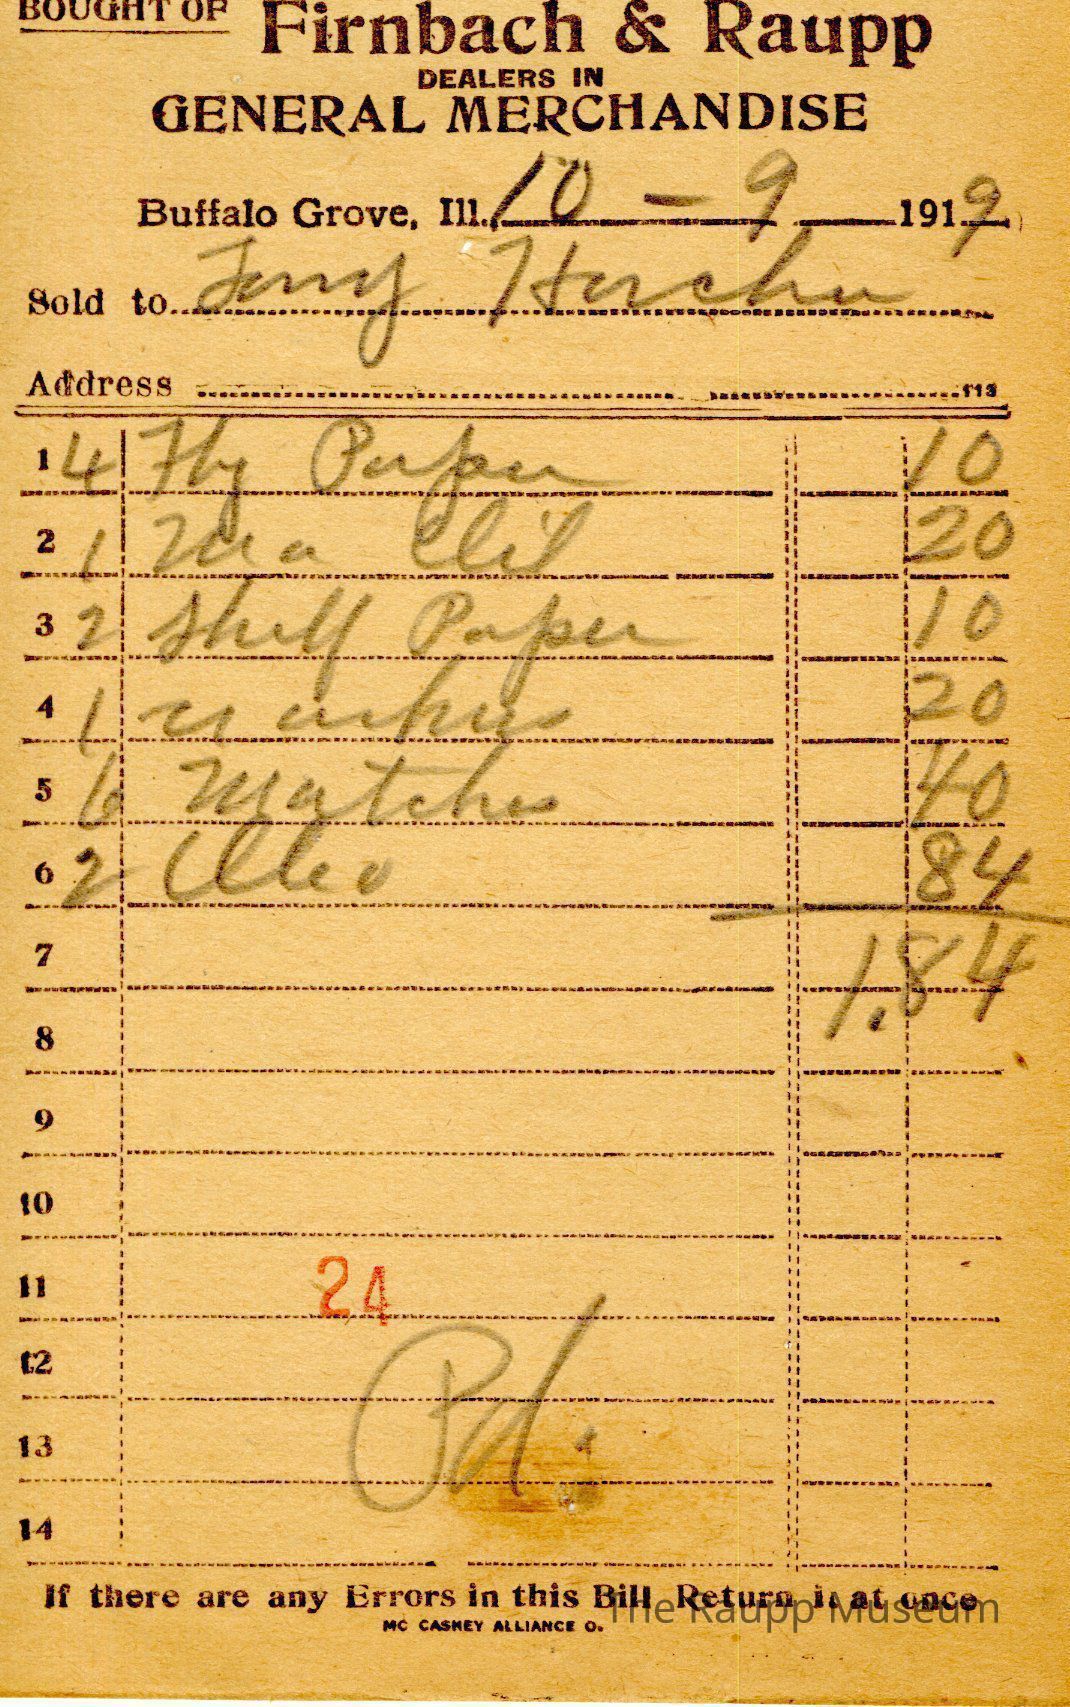 BOUGHT OF
Firnbach & Raupp
DEALERS IN
GENERAL MERCHANDISE
Buffalo Grove, Ill. 10 - 9 1919
Sold to
Address 113
1 4 Fly Paper 10
2 1 20
3 2 Shelf Paper 10
4 1 20
5 6 Matches 40
6 2 Oleo 84
7 1.84
8
9
10
11 24
12
13 Pd.
14
If there are any Errors in this Bill Return it at once
The Raupp Museum
MC CASKEY ALLIANCE O.